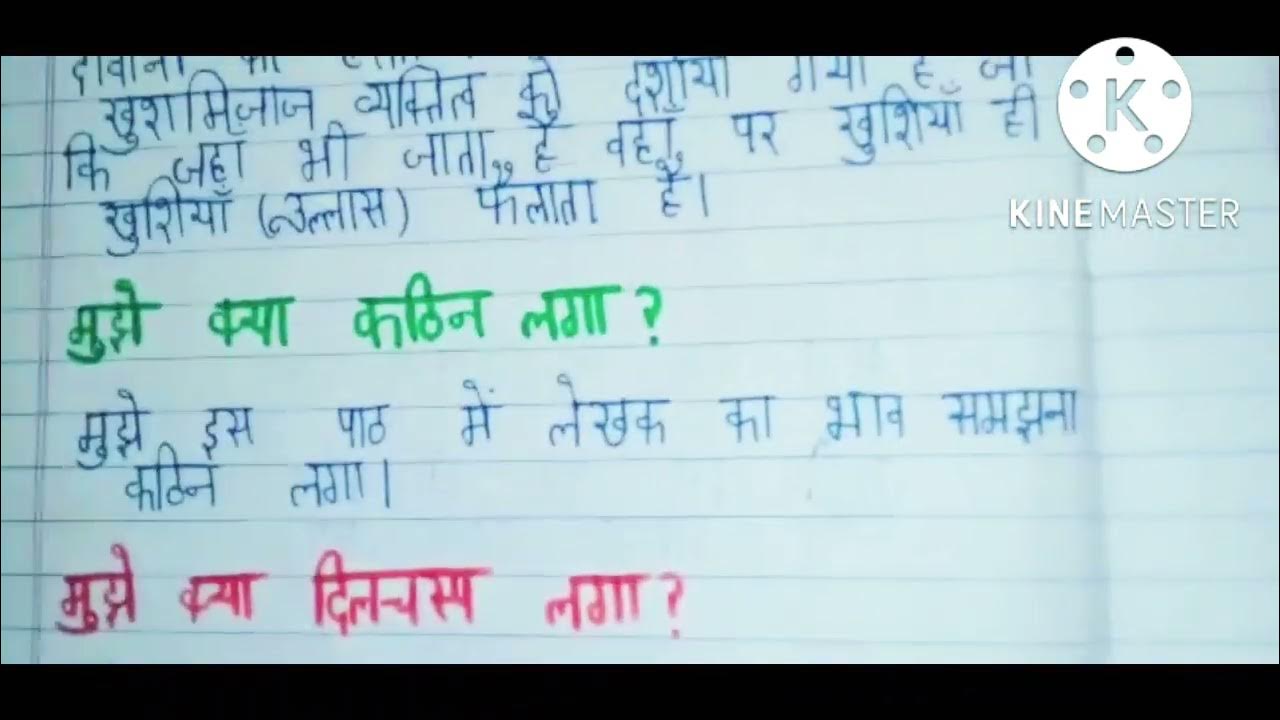 खुशमिजाज व्यक्तित्व को दर्शाया गया है जो
कि जहाँ भी जाता है वहा पर खुशियाँ ही
खुशियाँ (उल्लास) फैलाता है।
KINEMASTER
मुझे क्या कठिन लगा?
मुझे इस पाठ में लेखक का भाव समझना
कठिन लगा।
मुझे क्या दिलचस्प लगा?